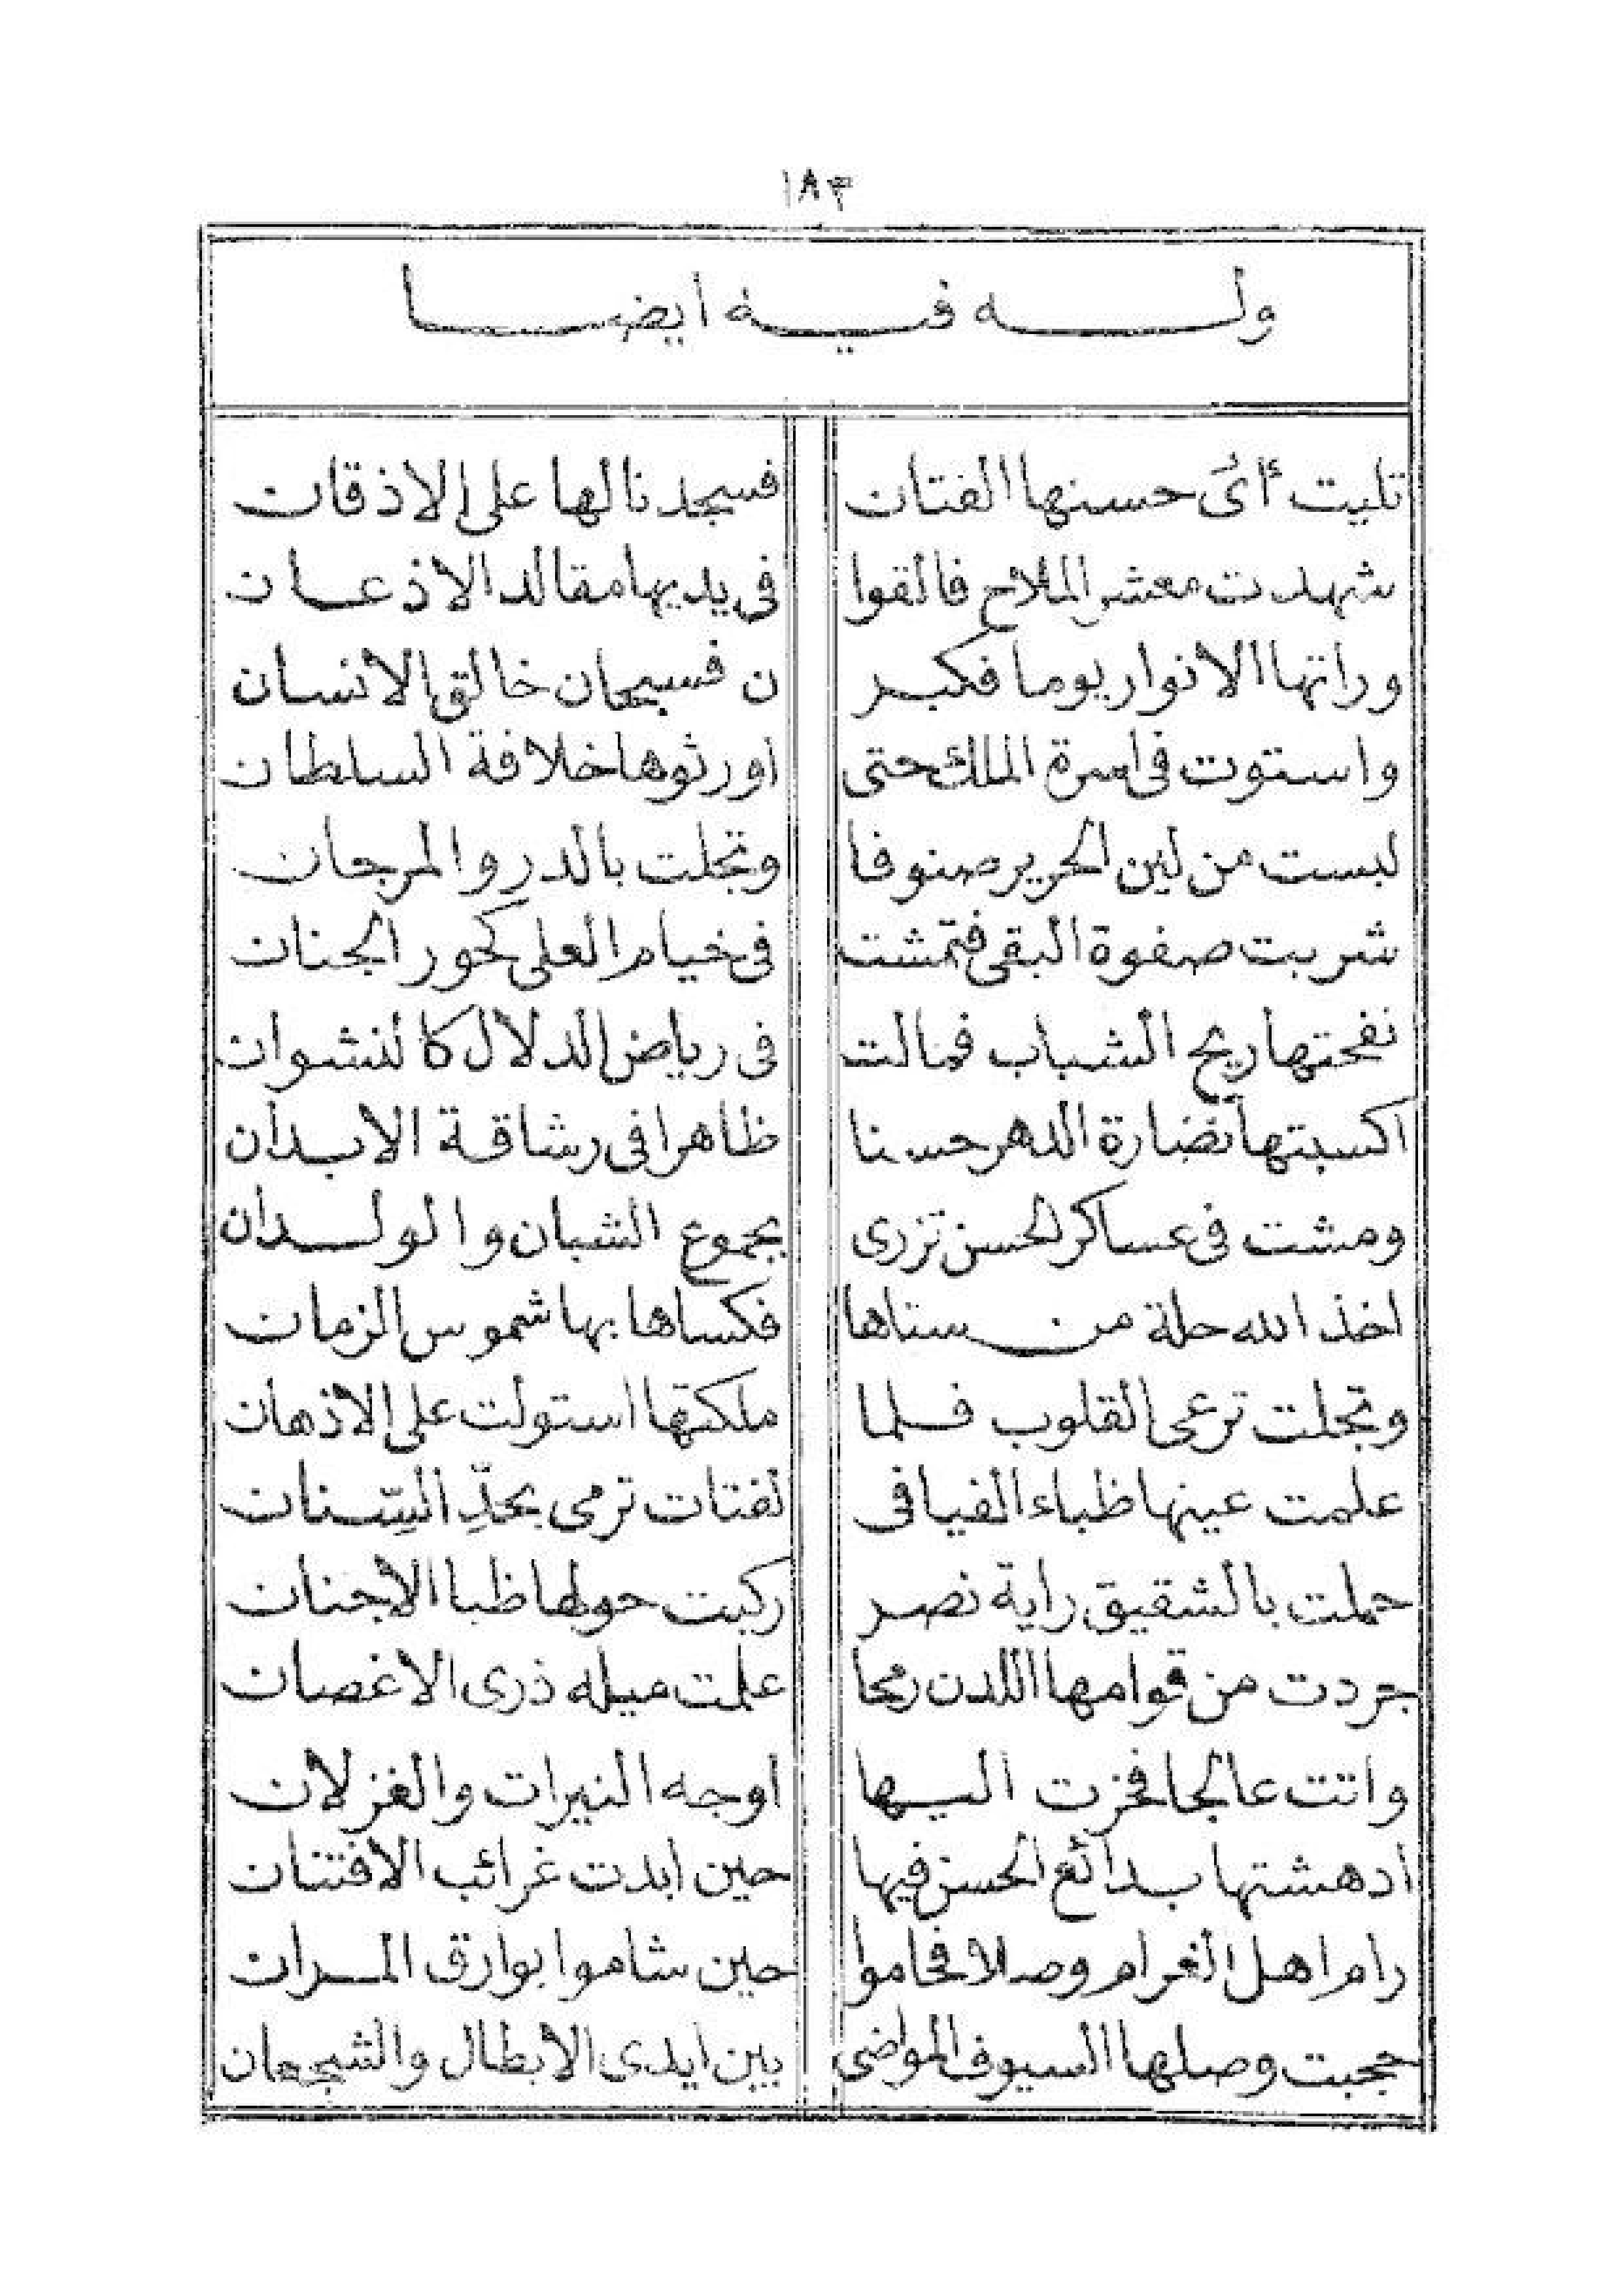 ١٨٣
ولـــه فيـــه أيضـــا
تليت أىُ حسنها الفتان فسجدنا لها على الاذقان
شهدت معشر الملاح فالقوا فى يديها مقالد الاذعــان
وراتها الانوار يوما فكبــر ن فسبحان خالق الأنسان
واستوت فى اسرة الملك حتى أورثوها خلافة السلطان
لبست من لين الحرير صنوفا وتجلت بالدر والمرجان
شربت صفوة البقى فتمشت فى خيام العلى كحور الجنان
نفحتها ريح الشباب فمالت فى رياض الدلال كالنشوان
اكسبتها نضارة الدهر حسنا ظاهرا فى رشاقة الابدان
ومشت فى عساكر الحسن تزرى بجموع الشبان والولــدان
اخذ الله حلة من سناها فكساها بها شموس الزمان
وتجلت ترعى القلوب فــلما ملكتها استولت على الاذهان
علمت عينها ظباء الفيافى لفتات ترمى بحدِّ السِّــنان
حملت بالشقيق راية نصــر ركبت حولها ظبا الأجنان
جردت من قوامها اللدن رمحا علمت ميله ذرى الاغصان
واتت عالجا فخرت اليــها اوجه النيرات والغزلان
أدهشتها بــدائع الحسن فيها حين أبدت غرائب الافتنان
رام اهل الغرام وصلا فحاموا حين شاموا بوارق المــران
حجبت وصلها السيوف المواضى بين ايدى الأبطال والشجعان